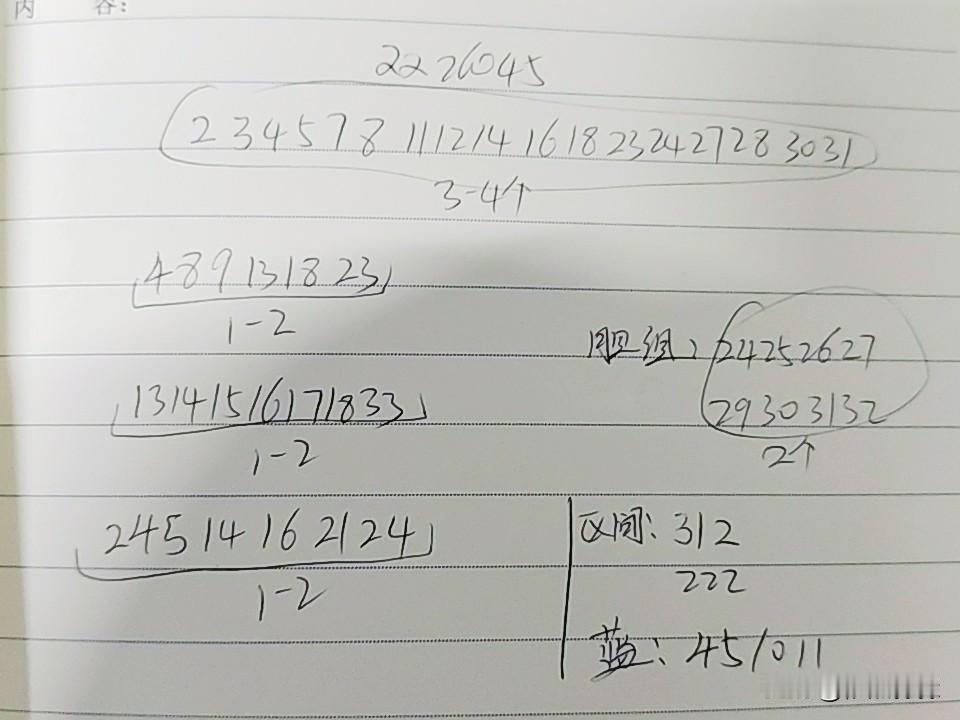 内 容:
2226045
2 3 4 5 7 8 11 12 14 16 18 23 24 27 28 30 31
3-4个
4 8 9 13 18 23
1-2
胆组: 24 25 26 27
29 30 31 32
2个
13 14 15 16 17 18 33
1-2
2 4 5 14 16 21 24
1-2
区间: 312
222
蓝: 4 5 10 11